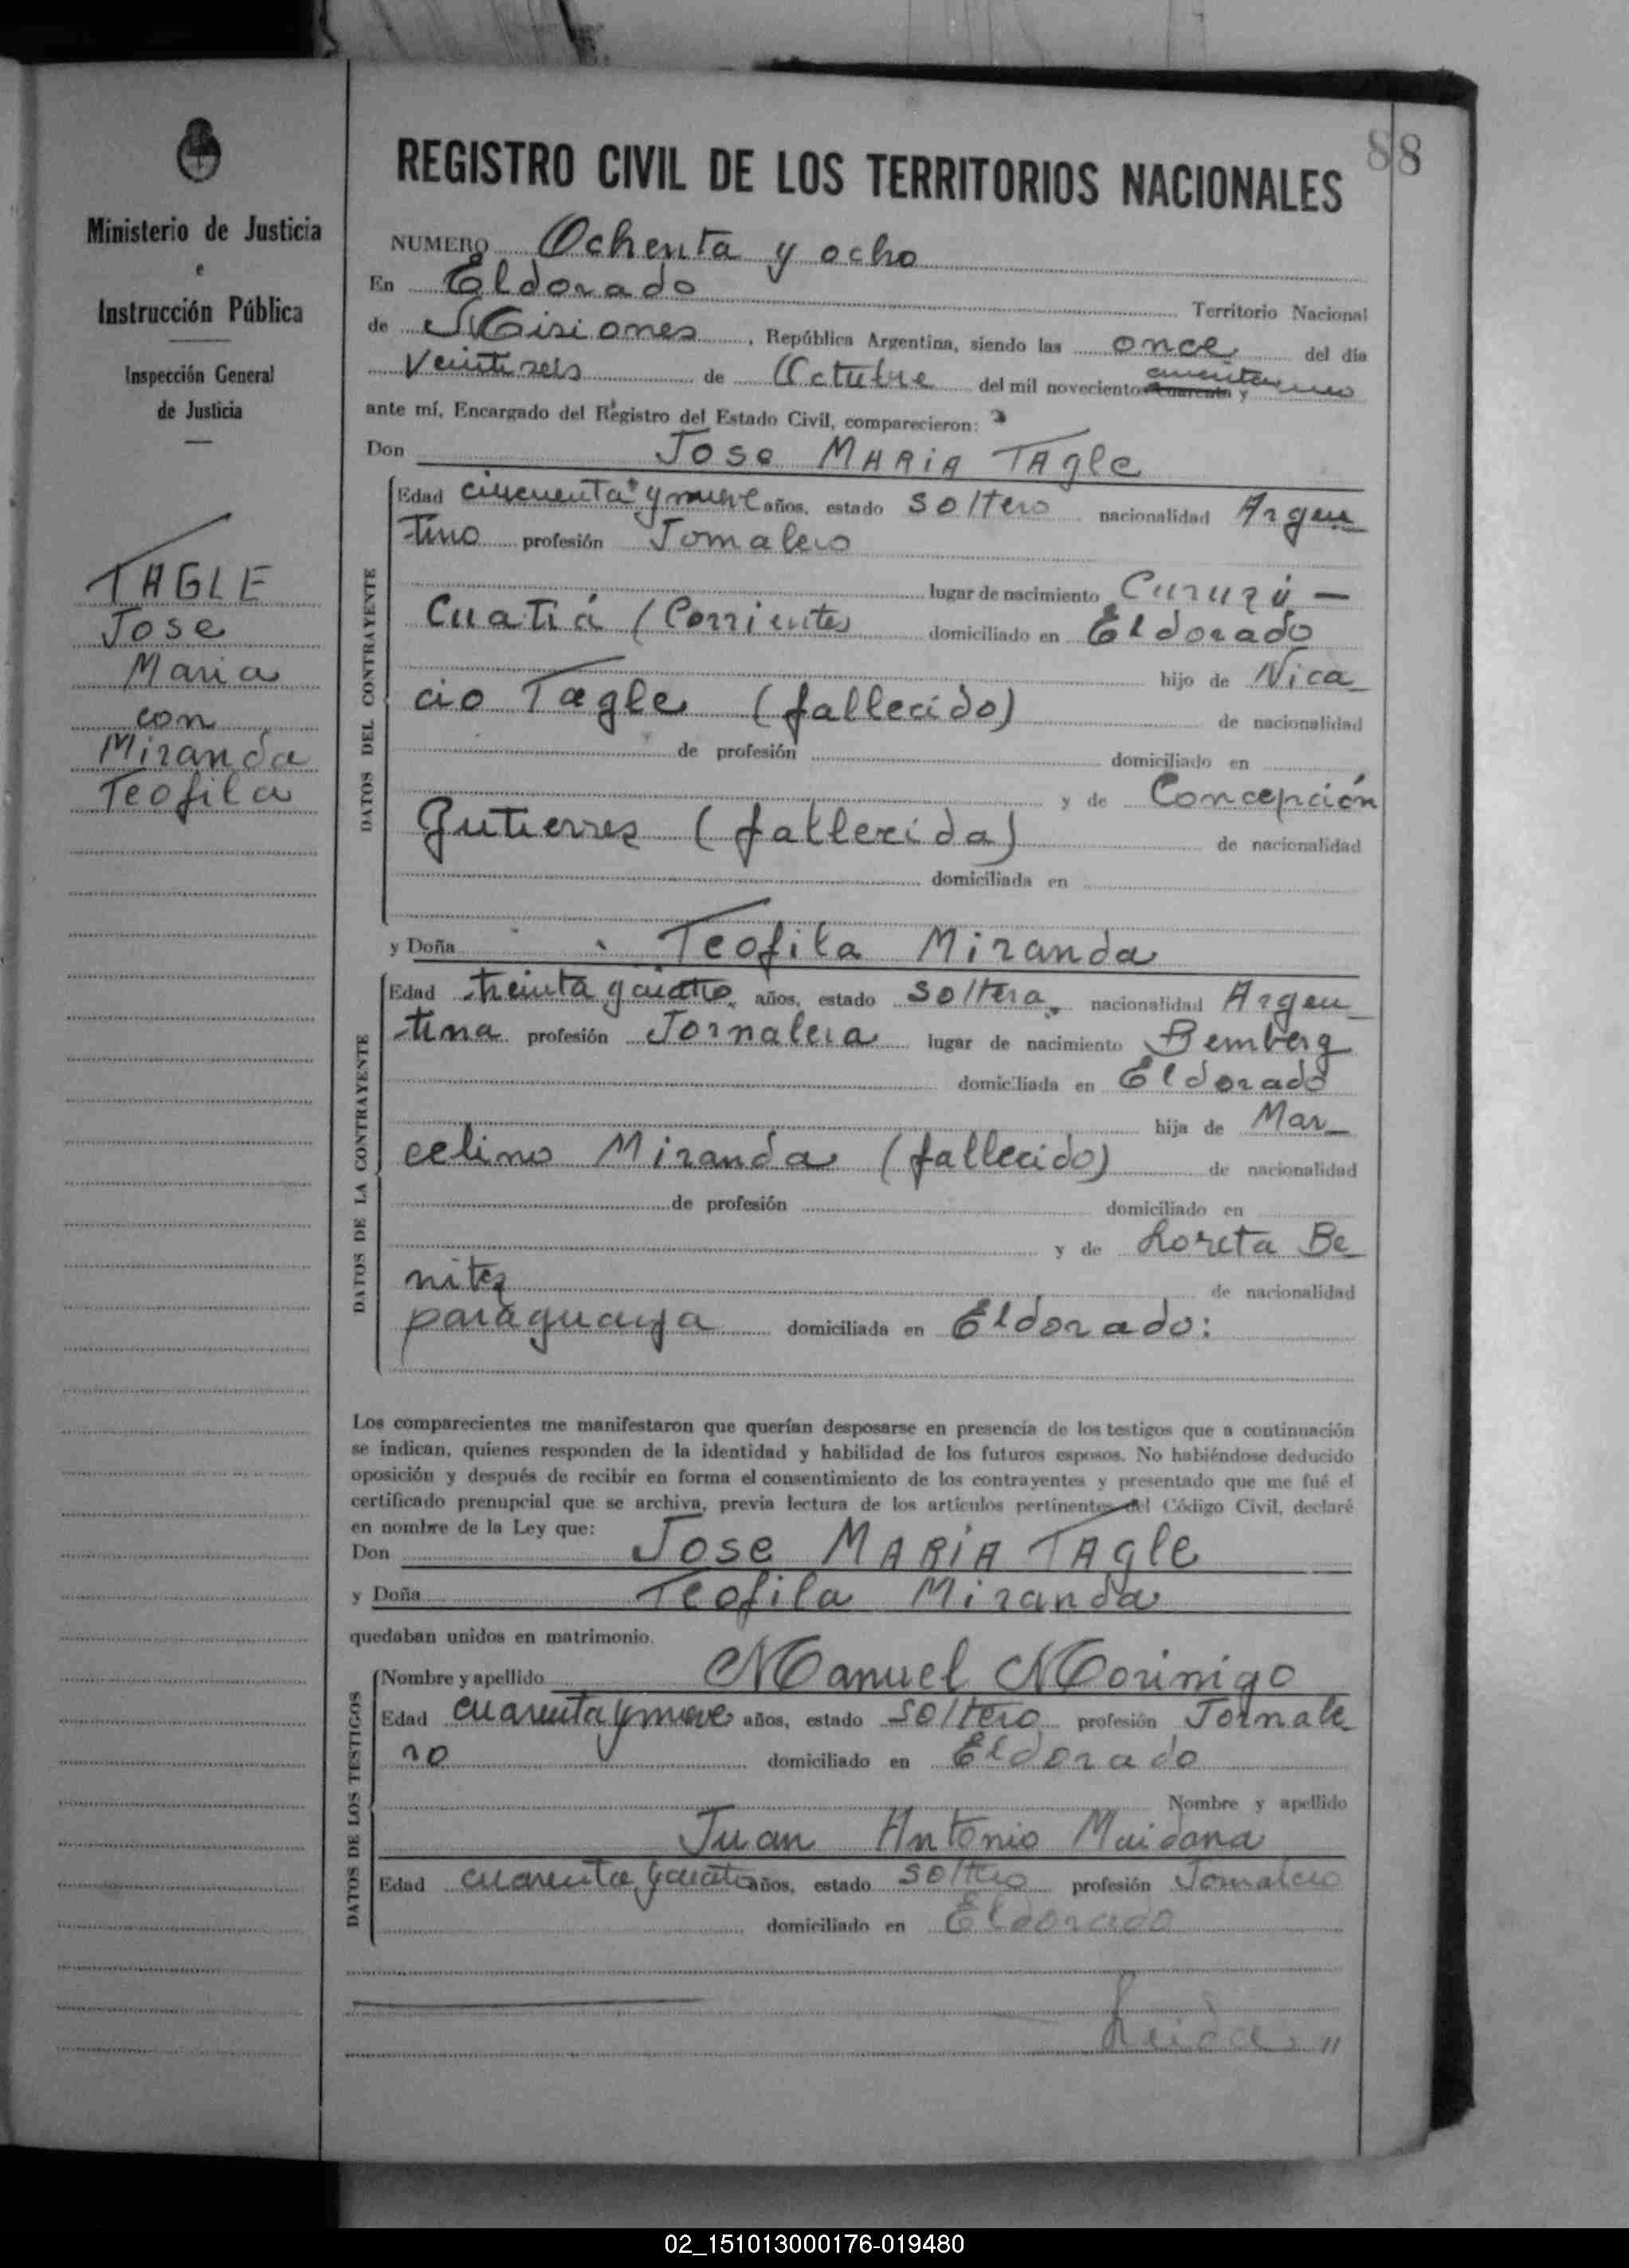 88
REGISTRO CIVIL DE LOS TERRITORIOS NACIONALES
Ministerio de Justicia
e
Instrucción Pública
Inspección General
de Justicia
TAGLE
Jose
Maria
con
Miranda
Teofila
NUMERO Ochenta y ocho
En Eldorado Territorio Nacional
de Misiones, República Argentina, siendo las once del día
Veintiseis de Octubre del mil noveciento cuarenta y
ante mí, Encargado del Registro del Estado Civil, comparecieron:
Don Jose MARiA TAgle
DATOS DEL CONTRAYENTE
Edad cincuenta y nueve años, estado soltero nacionalidad Argen
tino profesión Jornalero
lugar de nacimiento Curuzú -
Cuatiá (Corrientes domiciliado en Eldorado
hijo de Nica
cio Tagle (fallecido) de nacionalidad
de profesión domiciliado en
y de Concepción
Gutierres (fallecida) de nacionalidad
domiciliada en
y Doña Teofila Miranda
DATOS DE LA CONTRAYENTE
Edad treinta y cuatro años, estado soltera nacionalidad Argen
tina profesión Jornalera lugar de nacimiento Bemberg
domiciliada en Eldorado
hija de Mar
celino Miranda (fallecido) de nacionalidad
de profesión domiciliado en
y de Loreta Be
nitez de nacionalidad
paraguaya domiciliada en Eldorado:
Los comparecientes me manifestaron que querían desposarse en presencia de los testigos que a continuación
se indican, quienes responden de la identidad y habilidad de los futuros esposos. No habiéndose deducido
oposición y después de recibir en forma el consentimiento de los contrayentes y presentado que me fué el
certificado prenupcial que se archiva, previa lectura de los artículos pertinentes del Código Civil, declaré
en nombre de la Ley que:
Don Jose MARiA TAgle
y Doña Teofila Miranda
quedaban unidos en matrimonio.
DATOS DE LOS TESTIGOS
Nombre y apellido Manuel Morinigo
Edad cuarenta y nueve años, estado soltero profesión Jornale
ro domiciliado en Eldorado
Nombre y apellido
Juan Antonio Maidana
Edad cuarenta y cuatro años, estado soltero profesión Jornalero
domiciliado en Eldorado
Leida, //
02_151013000176-019480